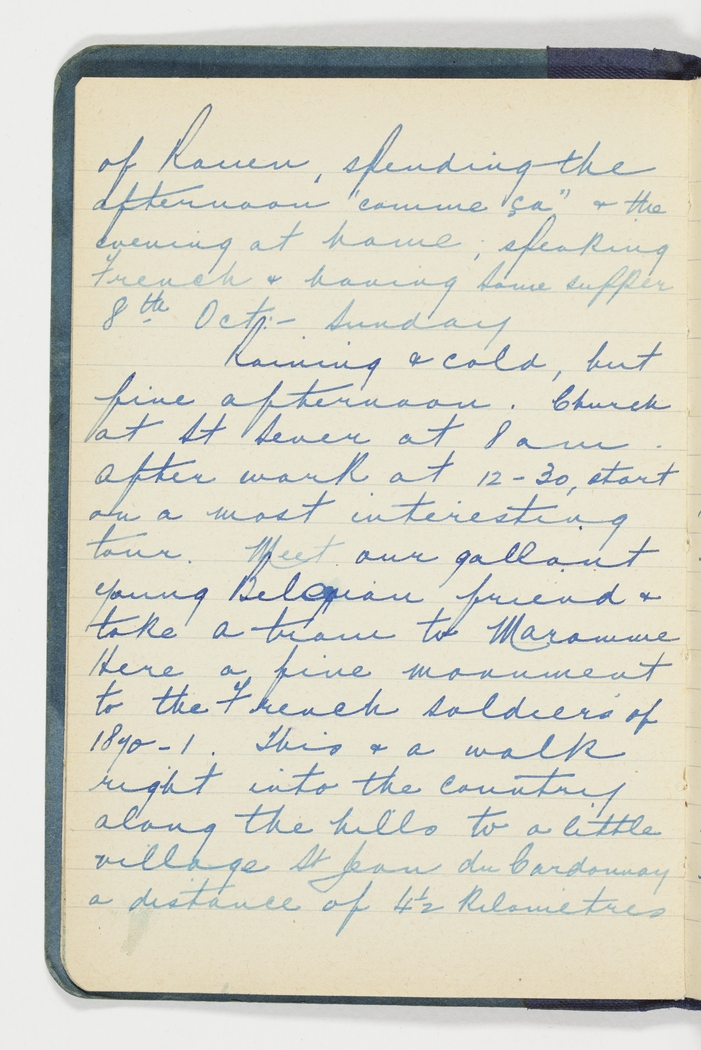 of Rouen, spending the
afternoon "comme ça" & the
evening at home; speaking
French & having some supper
8th Oct:- Sunday
Raining & cold, but
fine afternoon. Church
at St Sever at 8 am.
After work at 12-30, start
on a most interesting
tour. Meet our gallant
young Belgian friend &
take a tram to Maromme
Here a fine monument
to the French soldiers of
1870-1. This & a walk
right into the country
along the hills to a little
village St Jean du Cardonnay
a distance of 4½ Kilometres